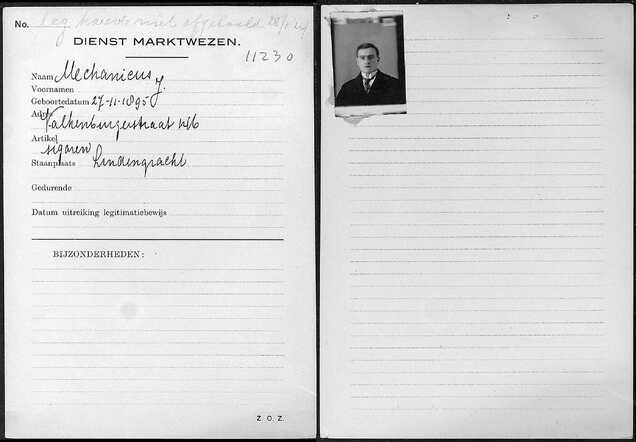 No. leg. kaart niet afgehaald 28/1 '24
DIENST MARKTWEZEN.
11230
Naam Mechanicus
Voornamen J.
Geboortedatum 27-11-1895
Adres Valkenburgerstraat
Artikel sigaren
Staanplaats Lindengracht
Gedurende
Datum uitreiking legitimatiebewijs
BIJZONDERHEDEN:
Z. O. Z.